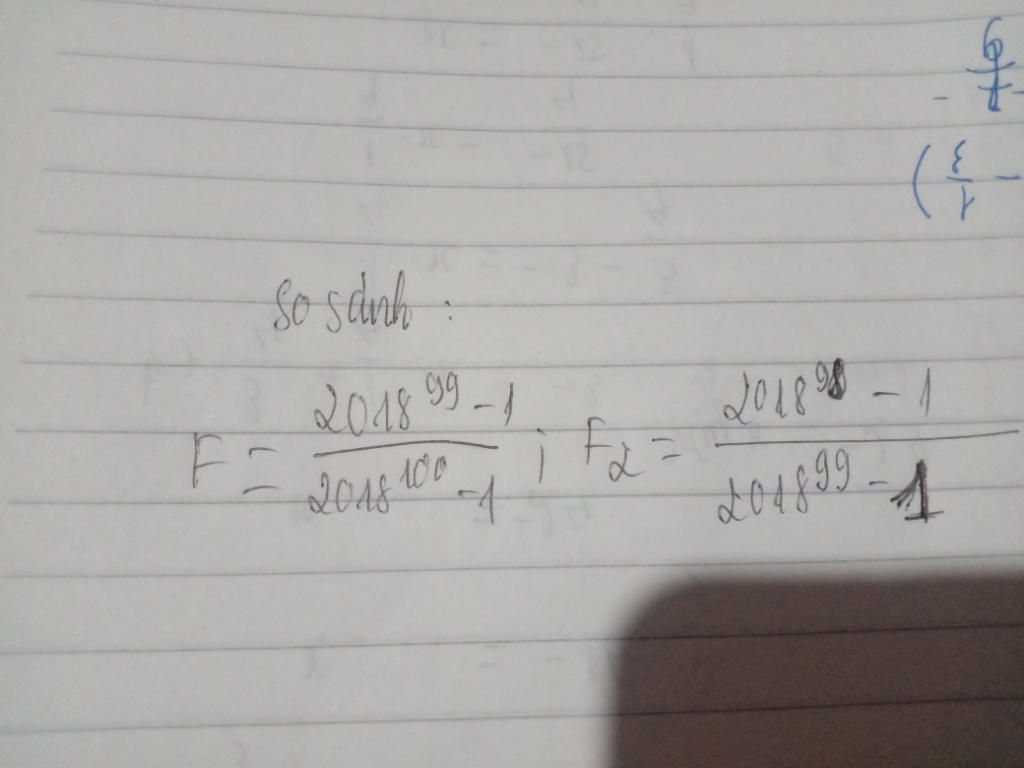 So sánh :
F = \frac{2018^{99} - 1}{2018^{100} - 1} ; F_2 = \frac{2018^{98} - 1}{2018^{99} - 1}